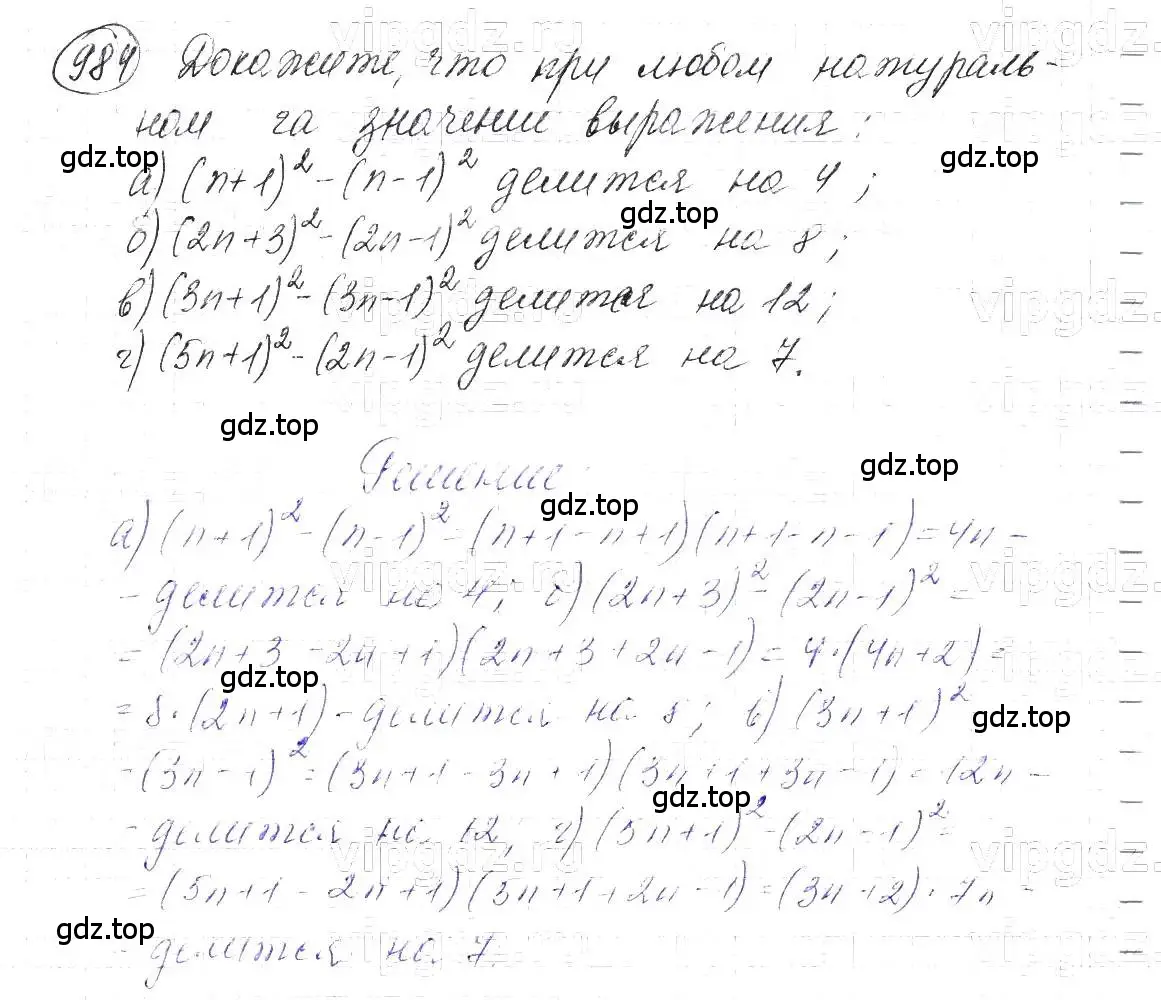 984 Докажите, что при любом натураль-
ном га значении выражения:
а) (n+1)² - (n-1)² делится на 4;
б) (2n+3)² - (2n-1)² делится на 8;
в) (3n+1)² - (3n-1)² делится на 12;
г) (5n+1)² - (2n-1)² делится на 7.
Решение:
а) (n+1)² - (n-1)² = (n+1-n+1)(n+1-n-1) = 4n -
- делится на 4; б) (2n+3)² - (2n-1)² =
= (2n+3-2n+1)(2n+3+2n-1) = 4·(4n+2) =
= 8·(2n+1) - делится на 8; в) (3n+1)²
- (3n-1)² = (3n+1-3n+1)(3n+1+3n-1) = 12n -
- делится на 12; г) (5n+1)² - (2n-1)² =
= (5n+1-2n+1)(5n+1+2n-1) = (3n+2)·7n -
- делится на 7.
gdz.top
gdz.top
gdz.top
gdz.top
gdz.top
gdz.top
gdz.top
gdz.top
gdz.top
gdz.top
vipgdz.ru
vipgdz.ru
vipgdz.ru
vipgdz.ru
vipgdz.ru
vipgdz.ru